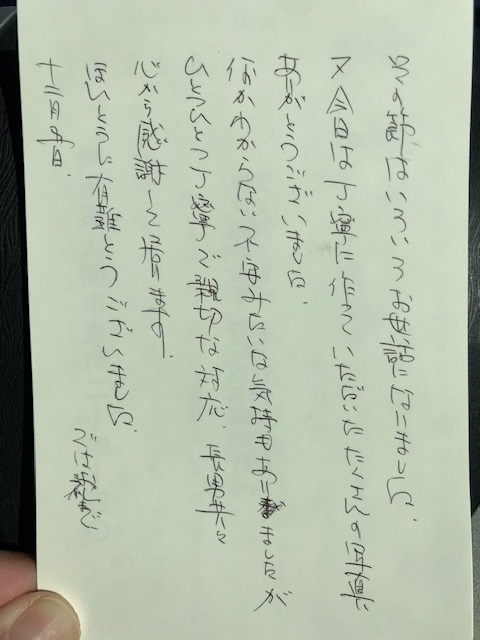 その節はいろいろお世話になりました。
又今日は丁寧に作っていただいたたくさんの写真
ありがとうございました。
何かわからない不安みたいな気持もありましたが
ひとつひとつ丁寧で親切な対応、長男共々
心から感謝して居ります。
ほんとうに有難とうございました。
十二月四日。